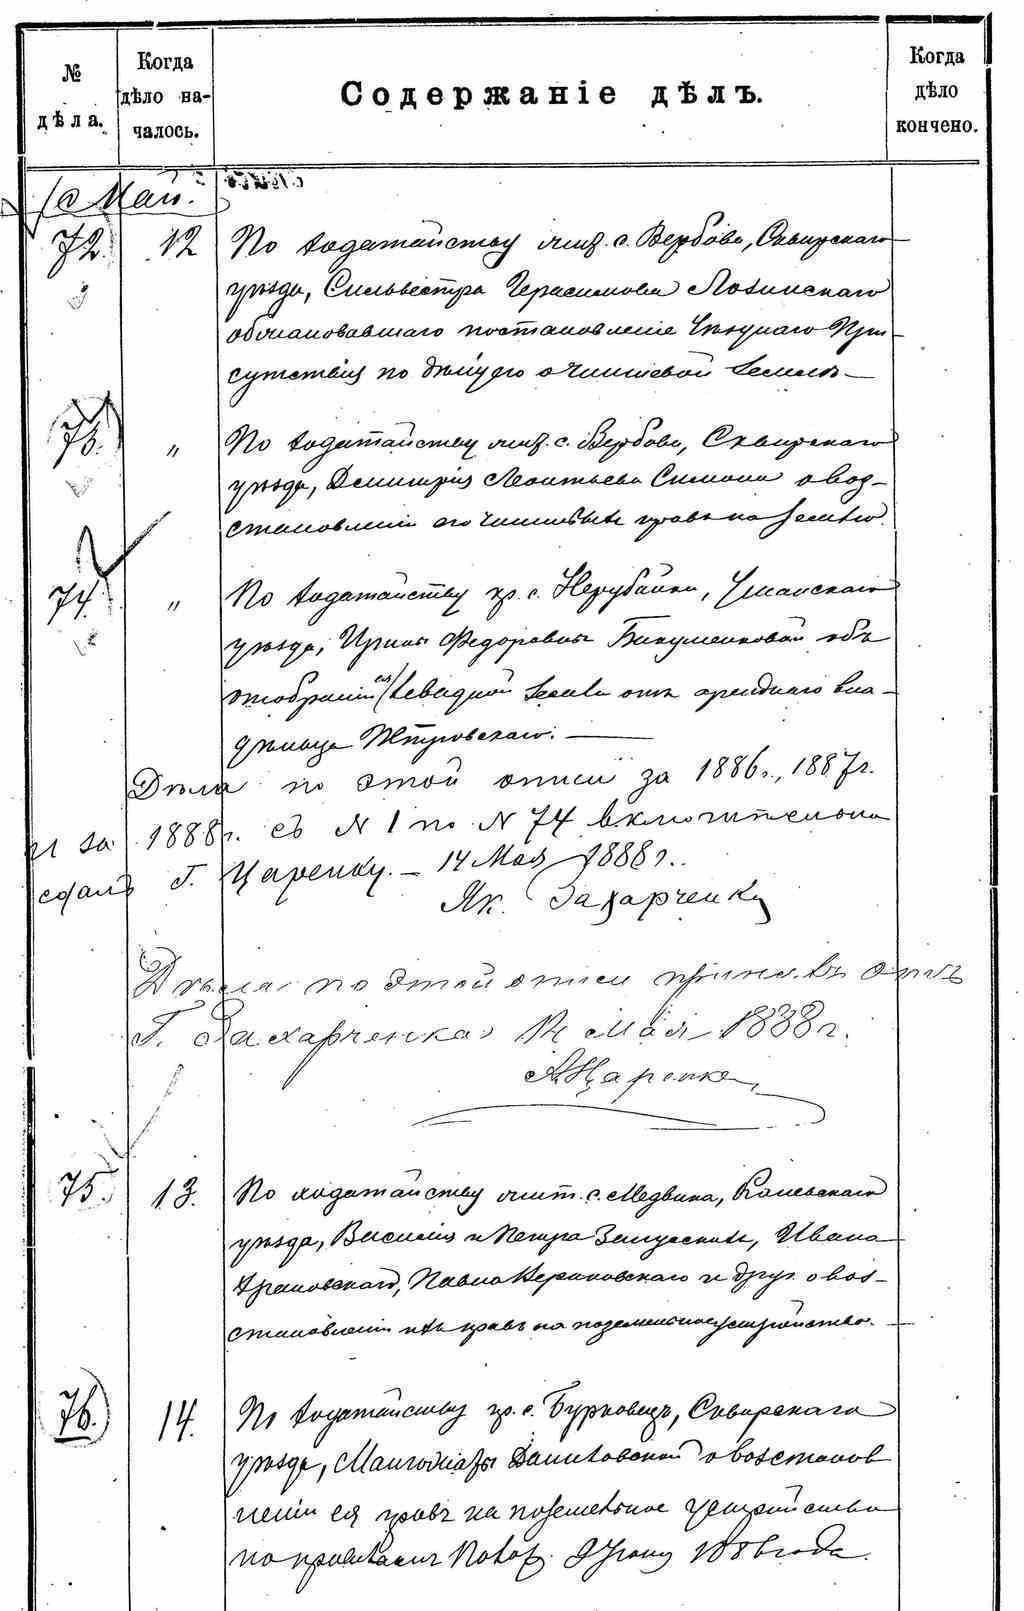 № дѣла.
Когда дѣло на-
чалось.
Содержаніе дѣлъ.
Когда
дѣло
кончено.
Май.
72. 12 По ходатайству с. Вербова, Сквирскаго
уѣзда, Сильвестра Герасимова Лозинскаго
обжаловавшаго постановленіе Уѣзднаго При-
сутствія по дѣлу его о чиншевой землѣ —
73. " По ходатайству с. Вербова, Сквирскаго
уѣзда, Димитрія Леонтьева о воз-
становленіи его чиншевыхъ правъ на землю.
74. " По ходатайству кр. с. Нерубайки, Уманскаго
уѣзда, Ирины Федоровны обь
отобраніи левадной земли отъ аренднаго вла-
дѣльца —
Дѣла по этой описи за 1886г., 1887г.
и за 1888г. съ N 1 по N 74 включительно
сдалъ Г. Царенку. — 14 Мая 1888г.
Як. Захарченко
Дѣла по этой описи принялъ отъ
Г. Захарченка 14 мая 1888г.
А. Царенко
75. 13. По ходатайству с. Медвина, Каневскаго
уѣзда, Василія и Петра Ивана
Павла и друг. о воз-
становленіи ихъ правъ на поземельное устройство. —
76. 14. По ходатайству кр. с. Бурковецъ, Сквирскаго
уѣзда, о возстанов
леніи ея правъ на поземельное устройство
по правиламъ Полож. 9 Іюня 1886 года.